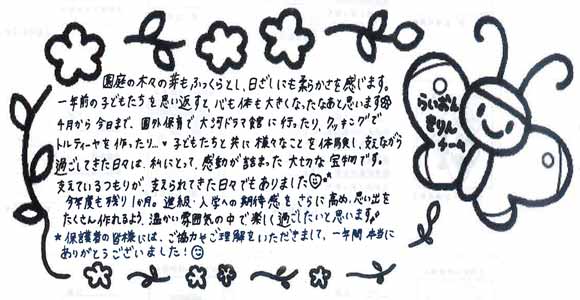 園庭の木々の芽もふっくらとし、日ざしにも柔らかさを感じます。
一年前の子どもたちを思い返すと、心も体も大きくなったなあと思います
4月から今日まで、園外保育で大河ドラマ館に行ったり、クッキングで
トルティーヤを作ったり…♥子どもたちと共に様々なことを体験し、支えながら
過ごしてきた日々は、私にとって、感動が詰まった大切な宝物です。
支えているつもりが、支えられてきた日々でもありました
今年度も残り1か月。進級・入学への期待感をさらに高め、思い出を
たくさん作れるよう、温かい雰囲気の中で楽しく過ごしたいと思います。
*保護者の皆様には、ご協力やご理解をいただきまして、一年間本当に
ありがとうございました!
らいおん
きりん
チーム